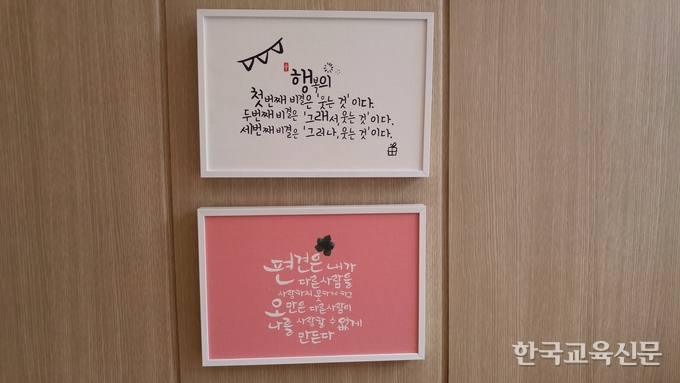 행복의
첫번째 비결은 '웃는 것'이다.
두번째 비결은 '그래서, 웃는 것'이다.
세번째 비결은 '그러나, 웃는 것'이다.
편견은 내가
다른사람을
사랑하지 못하게 하고
오만은 다른사람이
나를 사랑할 수 없게
만든다
한국교육신문